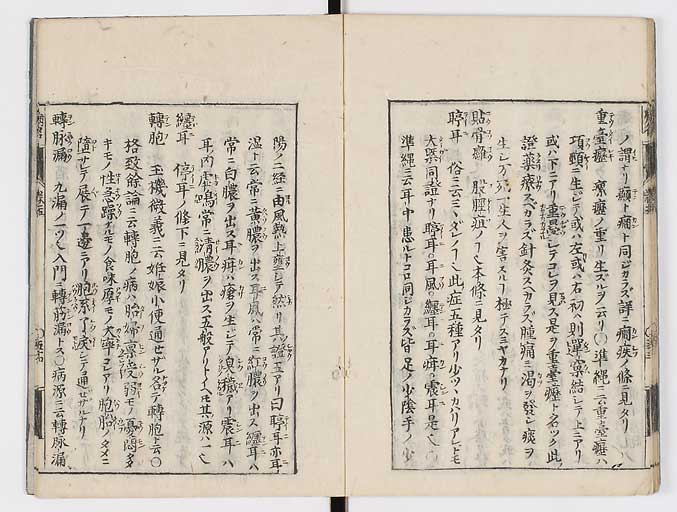 ノ謂ナリ癲ト癇ト同ジカラズ詳ニ癇疾ノ條ニ見タリ
重臺癧 瘰癧ノ重リ生ズルヲ云リ○準縄ニ云重臺癧ハ
項頸ニ生シテ或ハ左或ハ右初ハ則単窠結シテ上ニアリ
或ハ下ニアリ重疊シテコレヲ見ス是ヲ重臺癧ト名ツク此
證薬療スヘカラズ針灸スヘカラズ腫痛ニ渇ヲ發シ痰ヲ
生シ万死一生人ヲ害スルフ極テスミヤカナリ
貼骨癰 股脛疽ノ本條ニ見タリ
聤耳 俗ニ云ミヽダレノ此症五種アリ少ツヽカハリアレドモ
大槩同證ナリ聤耳耳風纏耳耳疳震耳是
準縄ニ云耳中患ルトコロ同ジカラズ皆足ノ少陰手ノ少
陽ノ二經ニ由風熱上壅シテ然リ其證五アリ曰聤耳亦耳
湿ト云常ニ黄膿ヲ出ス耳風ハ常ニ紅膿ヲ出ス纏耳ハ
常ニ白膿ヲ出ス耳疳ハ瘡ヲ生シテ臭穢アリ震耳ハ
耳内虚鳴常ニ清膿ヲ出ス五般アリトイヘ𪜈其源ハ一
纏耳 停耳ノ條下ニ見タリ
轉胞 玉機微義ニ云妊娠小便通セザル名テ轉胞ト云○
格致餘論ニ云轉胞ノ病ハ胎婦禀受弱モノ憂悶多
キモノ性急躁ナルモノ食味厚モノ大率コレアリ胞胎ノタメニ
墮サレテ展テ一邊ニアリ胞系了戻シテ通セザルナリ
轉脉漏 九漏ノ一ツ入門ニ轉筋漏トス○病源ニ云轉脉漏